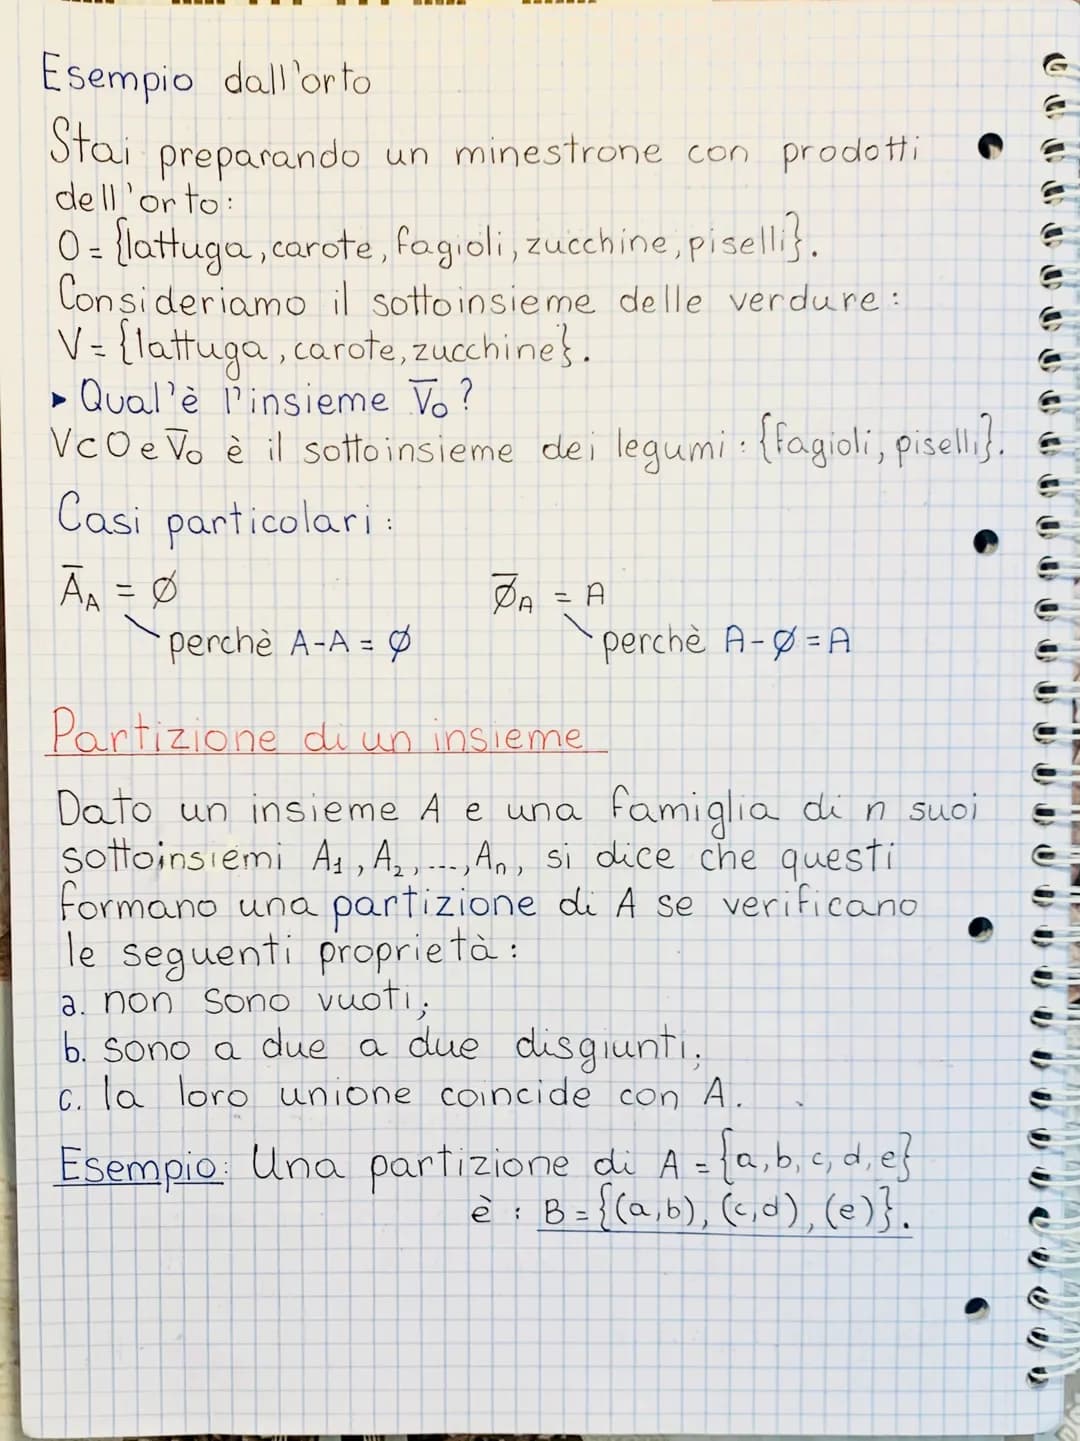 Esempio dall'orto
Stai preparando un minestrone con prodotti
dell'orto:
O = {lattuga, carote, fagioli, zucchine, piselli}.
Consideriamo il sottoinsieme delle verdure:
V = {lattuga, carote, zucchine}.
▸ Qual'è l'insieme V̅o?
V⊂O e V̅o è il sottoinsieme dei legumi: {fagioli, piselli}.
Casi particolari:
A̅_A = Ø    Ø̅_A = A
perchè A-A = Ø    perchè A-Ø = A
Partizione di un insieme
Dato un insieme A e una famiglia di n suoi
sottoinsiemi A₁, A₂, ..., Aₙ, si dice che questi
formano una partizione di A se verificano
le seguenti proprietà:
a. non sono vuoti;
b. sono a due a due disgiunti;
c. la loro unione coincide con A.
Esempio: Una partizione di A = {a, b, c, d, e}
è : B = {(a,b), (c,d), (e)}.